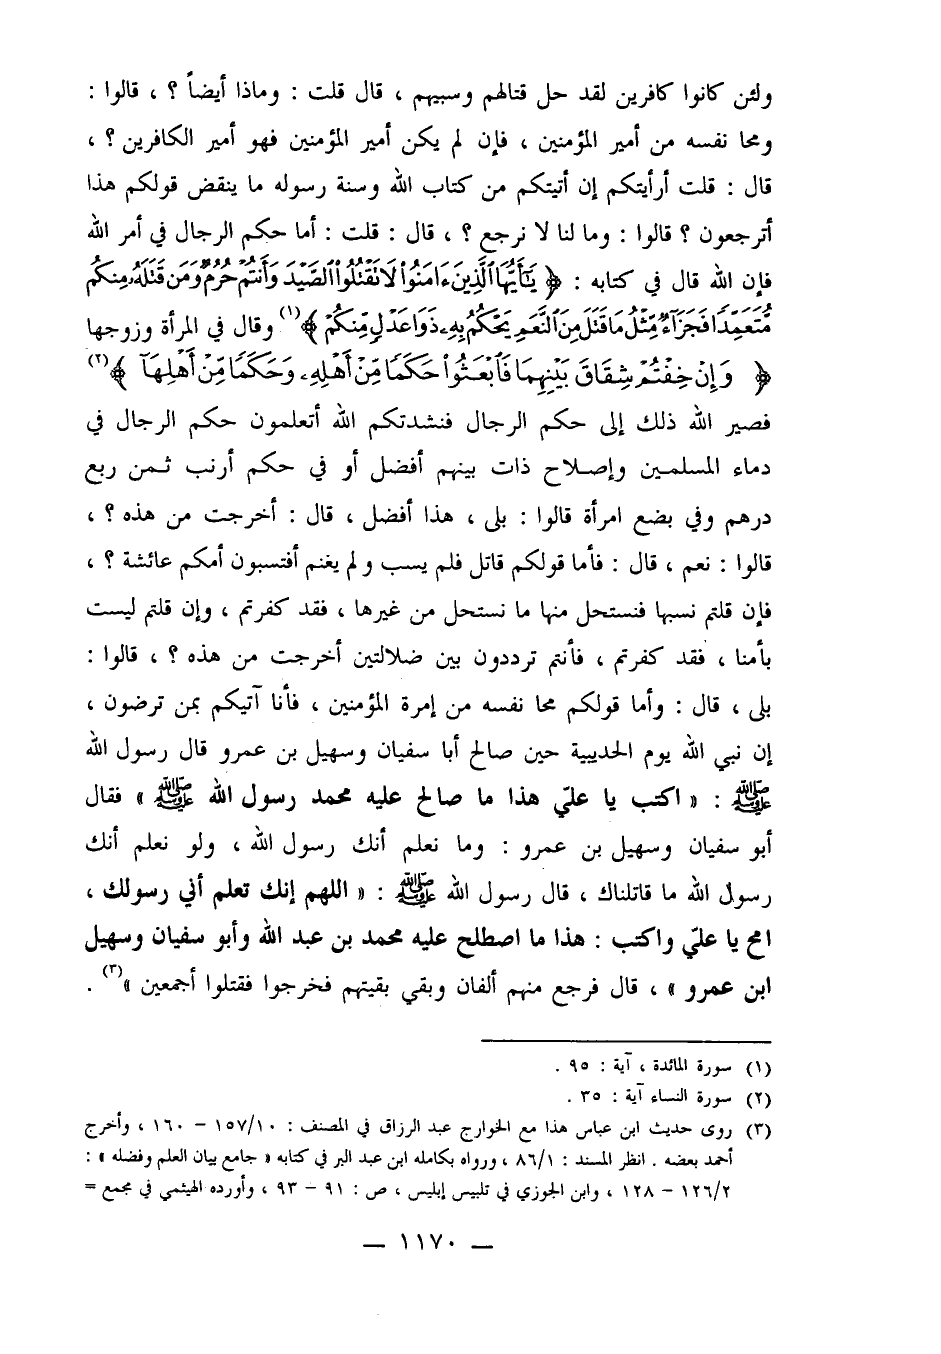 ولئن كانوا كافرين لقد حل قتالهم وسبيهم ، قال قلت : وماذا أيضاً ؟ ، قالوا :
ومحا نفسه من أمير المؤمنين ، فإن لم يكن أمير المؤمنين فهو أمير الكافرين ؟ ،
قال : قلت أرأيتكم إن أتيتكم من كتاب الله وسنة رسوله ما ينقض قولكم هذا
أترجعون ؟ قالوا : وما لنا لا نرجع ؟ ، قال : قلت : أما حكم الرجال في أمر الله
فإن الله قال في كتابه : ﴿ يَٰٓأَيُّهَا ٱلَّذِينَ ءَامَنُوا۟ لَا تَقْتُلُوا۟ ٱلصَّيْدَ وَأَنتُمْ حُرُمٌ وَمَن قَتَلَهُۥ مِنكُم
مُّتَعَمِّدًا فَجَزَآءٌ مِّثْلُ مَا قَتَلَ مِنَ ٱلنَّعَمِ يَحْكُمُ بِهِۦ ذَوَا عَدْلٍ مِّنكُمْ ﴾(١) وقال في المرأة وزوجها
﴿ وَإِنْ خِفْتُمْ شِقَاقَ بَيْنِهِمَا فَٱبْعَثُوا۟ حَكَمًا مِّنْ أَهْلِهِۦ وَحَكَمًا مِّنْ أَهْلِهَآ ﴾(٢)
فصير الله ذلك إلى حكم الرجال فنشدتكم الله أتعلمون حكم الرجال في
دماء المسلمين وإصلاح ذات بينهم أفضل أو في حكم أرنب ثمن ربع
درهم وفي بضع امرأة قالوا : بلى ، هذا أفضل ، قال : أخرجت من هذه ؟ ،
قالوا : نعم ، قال : فأما قولكم قاتل فلم يسب ولم يغنم أفتسبون أمكم عائشة ؟ ،
فإن قلتم نسبها فنستحل منها ما نستحل من غيرها ، فقد كفرتم ، وإن قلتم ليست
بأمنا ، فقد كفرتم ، فأنتم ترددون بين ضلالتين أخرجت من هذه ؟ ، قالوا :
بلى ، قال : وأما قولكم محا نفسه من إمرة المؤمنين ، فأنا آتيكم بمن ترضون ،
إن نبي الله يوم الحديبية حين صالح أبا سفيان وسهيل بن عمرو قال رسول الله
ﷺ : « اكتب يا عليّ هذا ما صالح عليه محمد رسول الله ﷺ » فقال
أبو سفيان وسهيل بن عمرو : وما نعلم أنك رسول الله ، ولو نعلم أنك
رسول الله ما قاتلناك ، قال رسول الله ﷺ : « اللهم إنك تعلم أني رسولك ،
امح يا عليّ واكتب : هذا ما اصطلح عليه محمد بن عبد الله وأبو سفيان وسهيل
ابن عمرو » ، قال فرجع منهم ألفان وبقي بقيتهم فخرجوا فقتلوا أجمعين »(٣) .
(١) سورة المائدة ، آية : ٩٥ .
(٢) سورة النساء آية : ٣٥ .
(٣) روى حديث ابن عباس هذا مع الخوارج عبد الرزاق في المصنف : ١٥٧/١٠ – ١٦٠ ، وأخرج
أحمد بعضه . انظر المسند : ٨٦/١ ، ورواه بكامله ابن عبد البر في كتابه « جامع بيان العلم وفضله » :
١٢٦/٢ – ١٢٨ ، وابن الجوزي في تلبيس إبليس ، ص : ٩١ – ٩٣ ، وأورده الهيثمي في مجمع =
— ١١٧٠ —